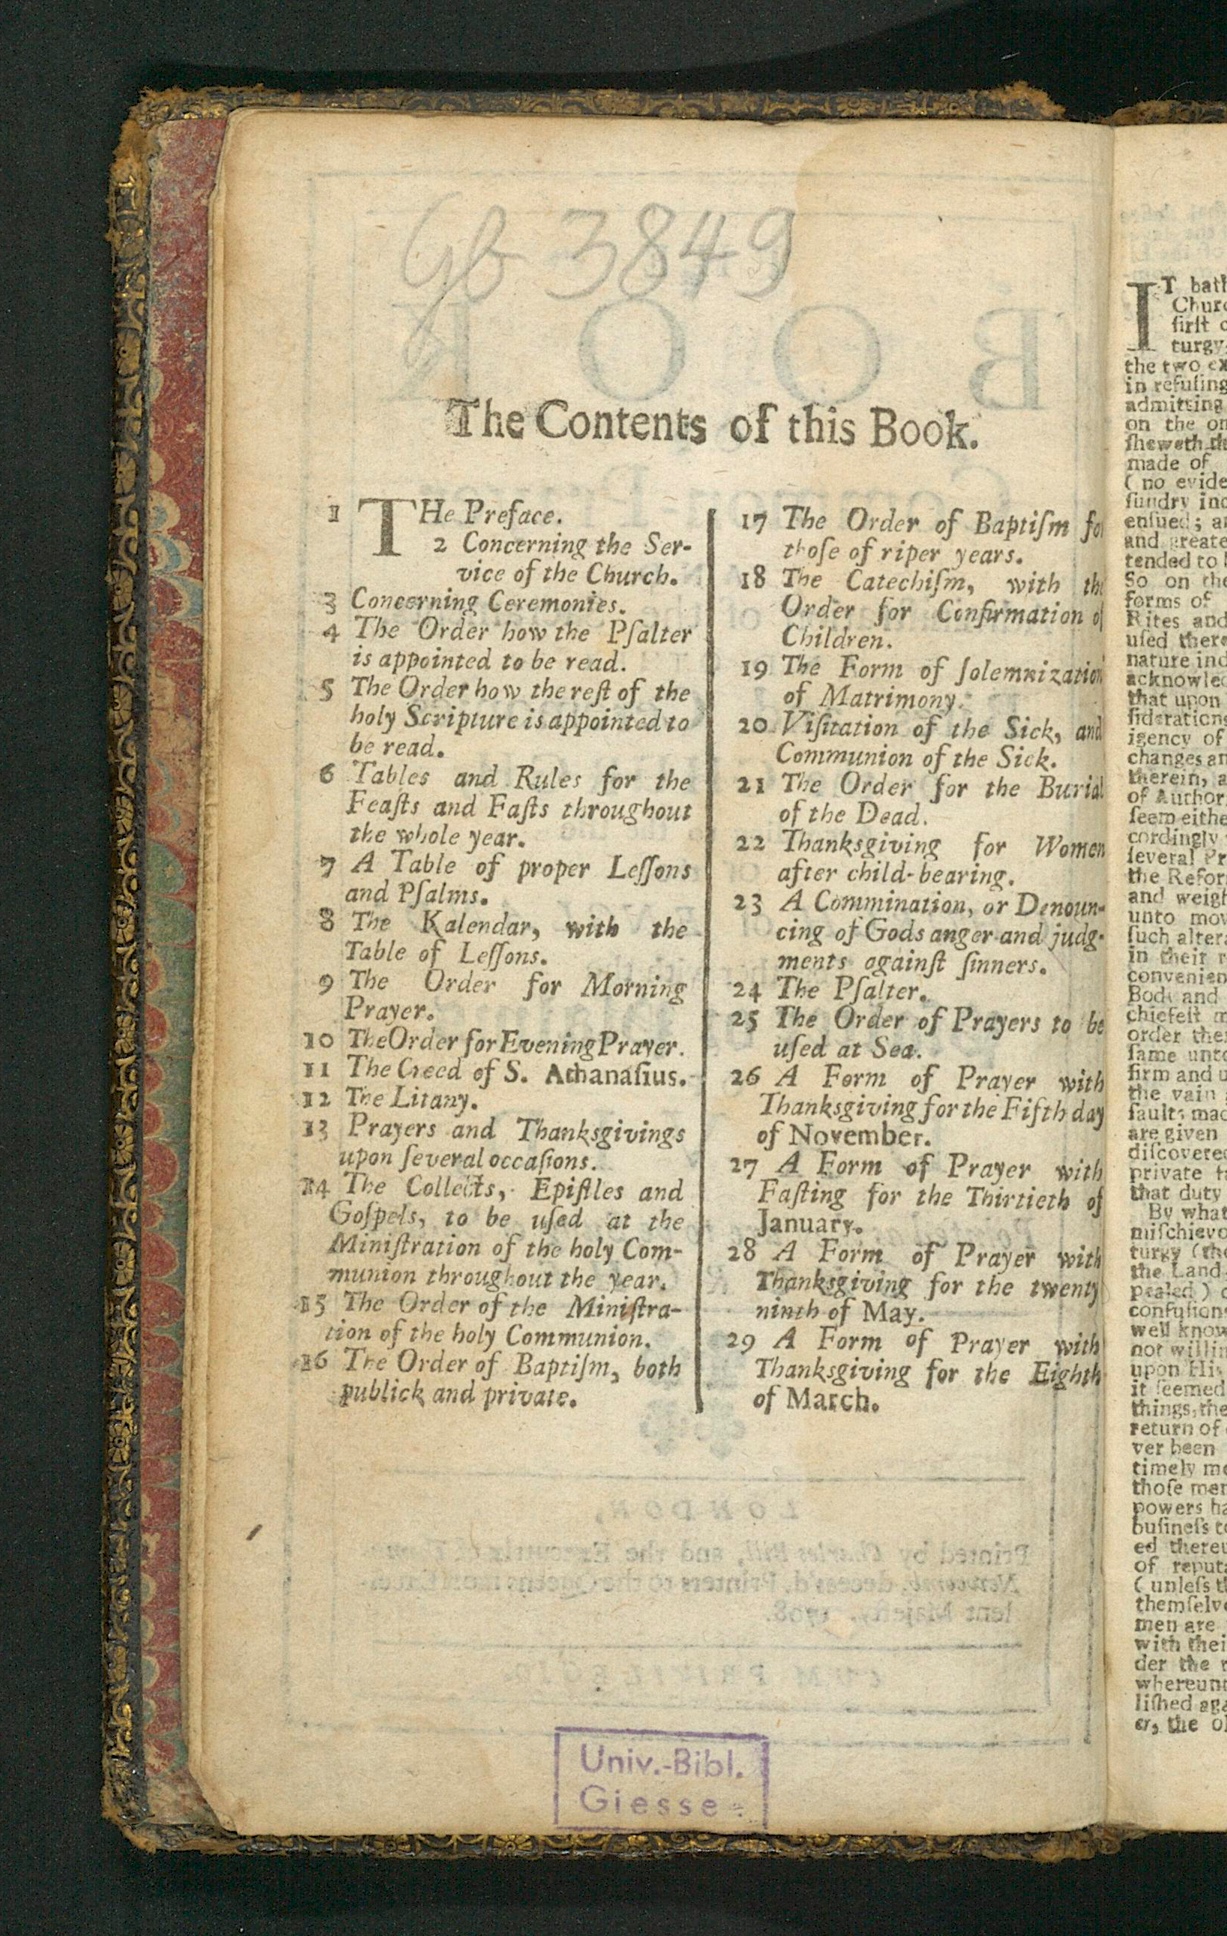 Gb 3849
The Contents of this Book.
1 THe Preface.
2 Concerning the Ser-
vice of the Church.
3 Concerning Ceremonies.
4 The Order how the Pſalter
is appointed to be read.
5 The Order how the reſt of the
holy Scripture is appointed to
be read.
6 Tables and Rules for the
Feaſts and Faſts throughout
the whole year.
7 A Table of proper Leſſons
and Pſalms.
8 The Kalendar, with the
Table of Leſſons.
9 The Order for Morning
Prayer.
10 The Order for Evening Prayer.
11 The Creed of S. Athanaſius.
12 The Litany.
13 Prayers and Thanksgivings
upon ſeveral occaſions.
14 The Collects, Epiſtles and
Goſpels, to be uſed at the
Miniſtration of the holy Com-
munion throughout the year.
15 The Order of the Miniſtra-
tion of the holy Communion.
16 The Order of Baptiſm, both
publick and private.
17 The Order of Baptiſm fo
thoſe of riper years.
18 The Catechiſm, with th
Order for Confirmation o
Children.
19 The Form of ſolemnization
of Matrimony.
20 Viſitation of the Sick, and
Communion of the Sick.
21 The Order for the Burial
of the Dead.
22 Thanksgiving for Women
after child-bearing.
23 A Commination, or Denoun-
cing of Gods anger and judg-
ments againſt ſinners.
24 The Pſalter.
25 The Order of Prayers to be
uſed at Sea.
26 A Form of Prayer with
Thanksgiving for the Fifth day
of November.
27 A Form of Prayer with
Faſting for the Thirtieth of
January.
28 A Form of Prayer with
Thanksgiving for the twenty
ninth of May.
29 A Form of Prayer with
Thanksgiving for the Eighth
of March.
Univ.-Bibl.
Giesse
IT hath
Churc
firſt c
turgy
the two ex
in refuſing
admitting
on the on
ſheweth th
made of
( no evide
ſundry inc
enſued; a
and greate
tended to
So on the
forms of
Rites and
uſed there
nature ind
acknowled
that upon
ſiderations
igency of
changes an
therein, a
of Author
ſeem eithe
cordingly
ſeveral Pr
the Refor
and weigh
unto mov
ſuch altera
in their r
convenien
Bodi and
chiefeſt m
order the
ſame unto
firm and u
the vain
faults mad
are given
diſcovered
private
that duty
By what
miſchievo
turgy (the
the Land
pealed) c
confuſions
well know
not willin
upon His
it ſeemed
things, the
return of
ver been
timely me
thoſe men
powers ha
buſineſs to
ed thereu
of reputa
( unleſs t
themſelve
men are
with thei
der the r
whereunt
liſhed aga
er, the ol